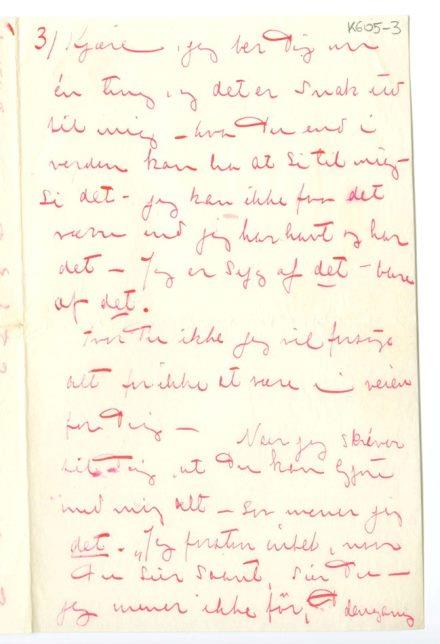 K605-3
3/ Kjære, jeg ber Dig om
én ting, og det er Snak ud
til mig – hva Du end i
verden kan ha at si til mig –
Si det – jeg kan ikke faa det
værre end jeg har havt og har
det – Jeg er Syg af det – bare
af det.
Tror Du ikke jeg vil forsøge
alt for ikke at være i veien
for Dig – Naar jeg skriver
til Dig, at Du kan gjøre
med mig alt – saa mener jeg
det. „Jeg forstår intet, naar
Du sier saant, sier Du –
jeg mener ikke før, dengang